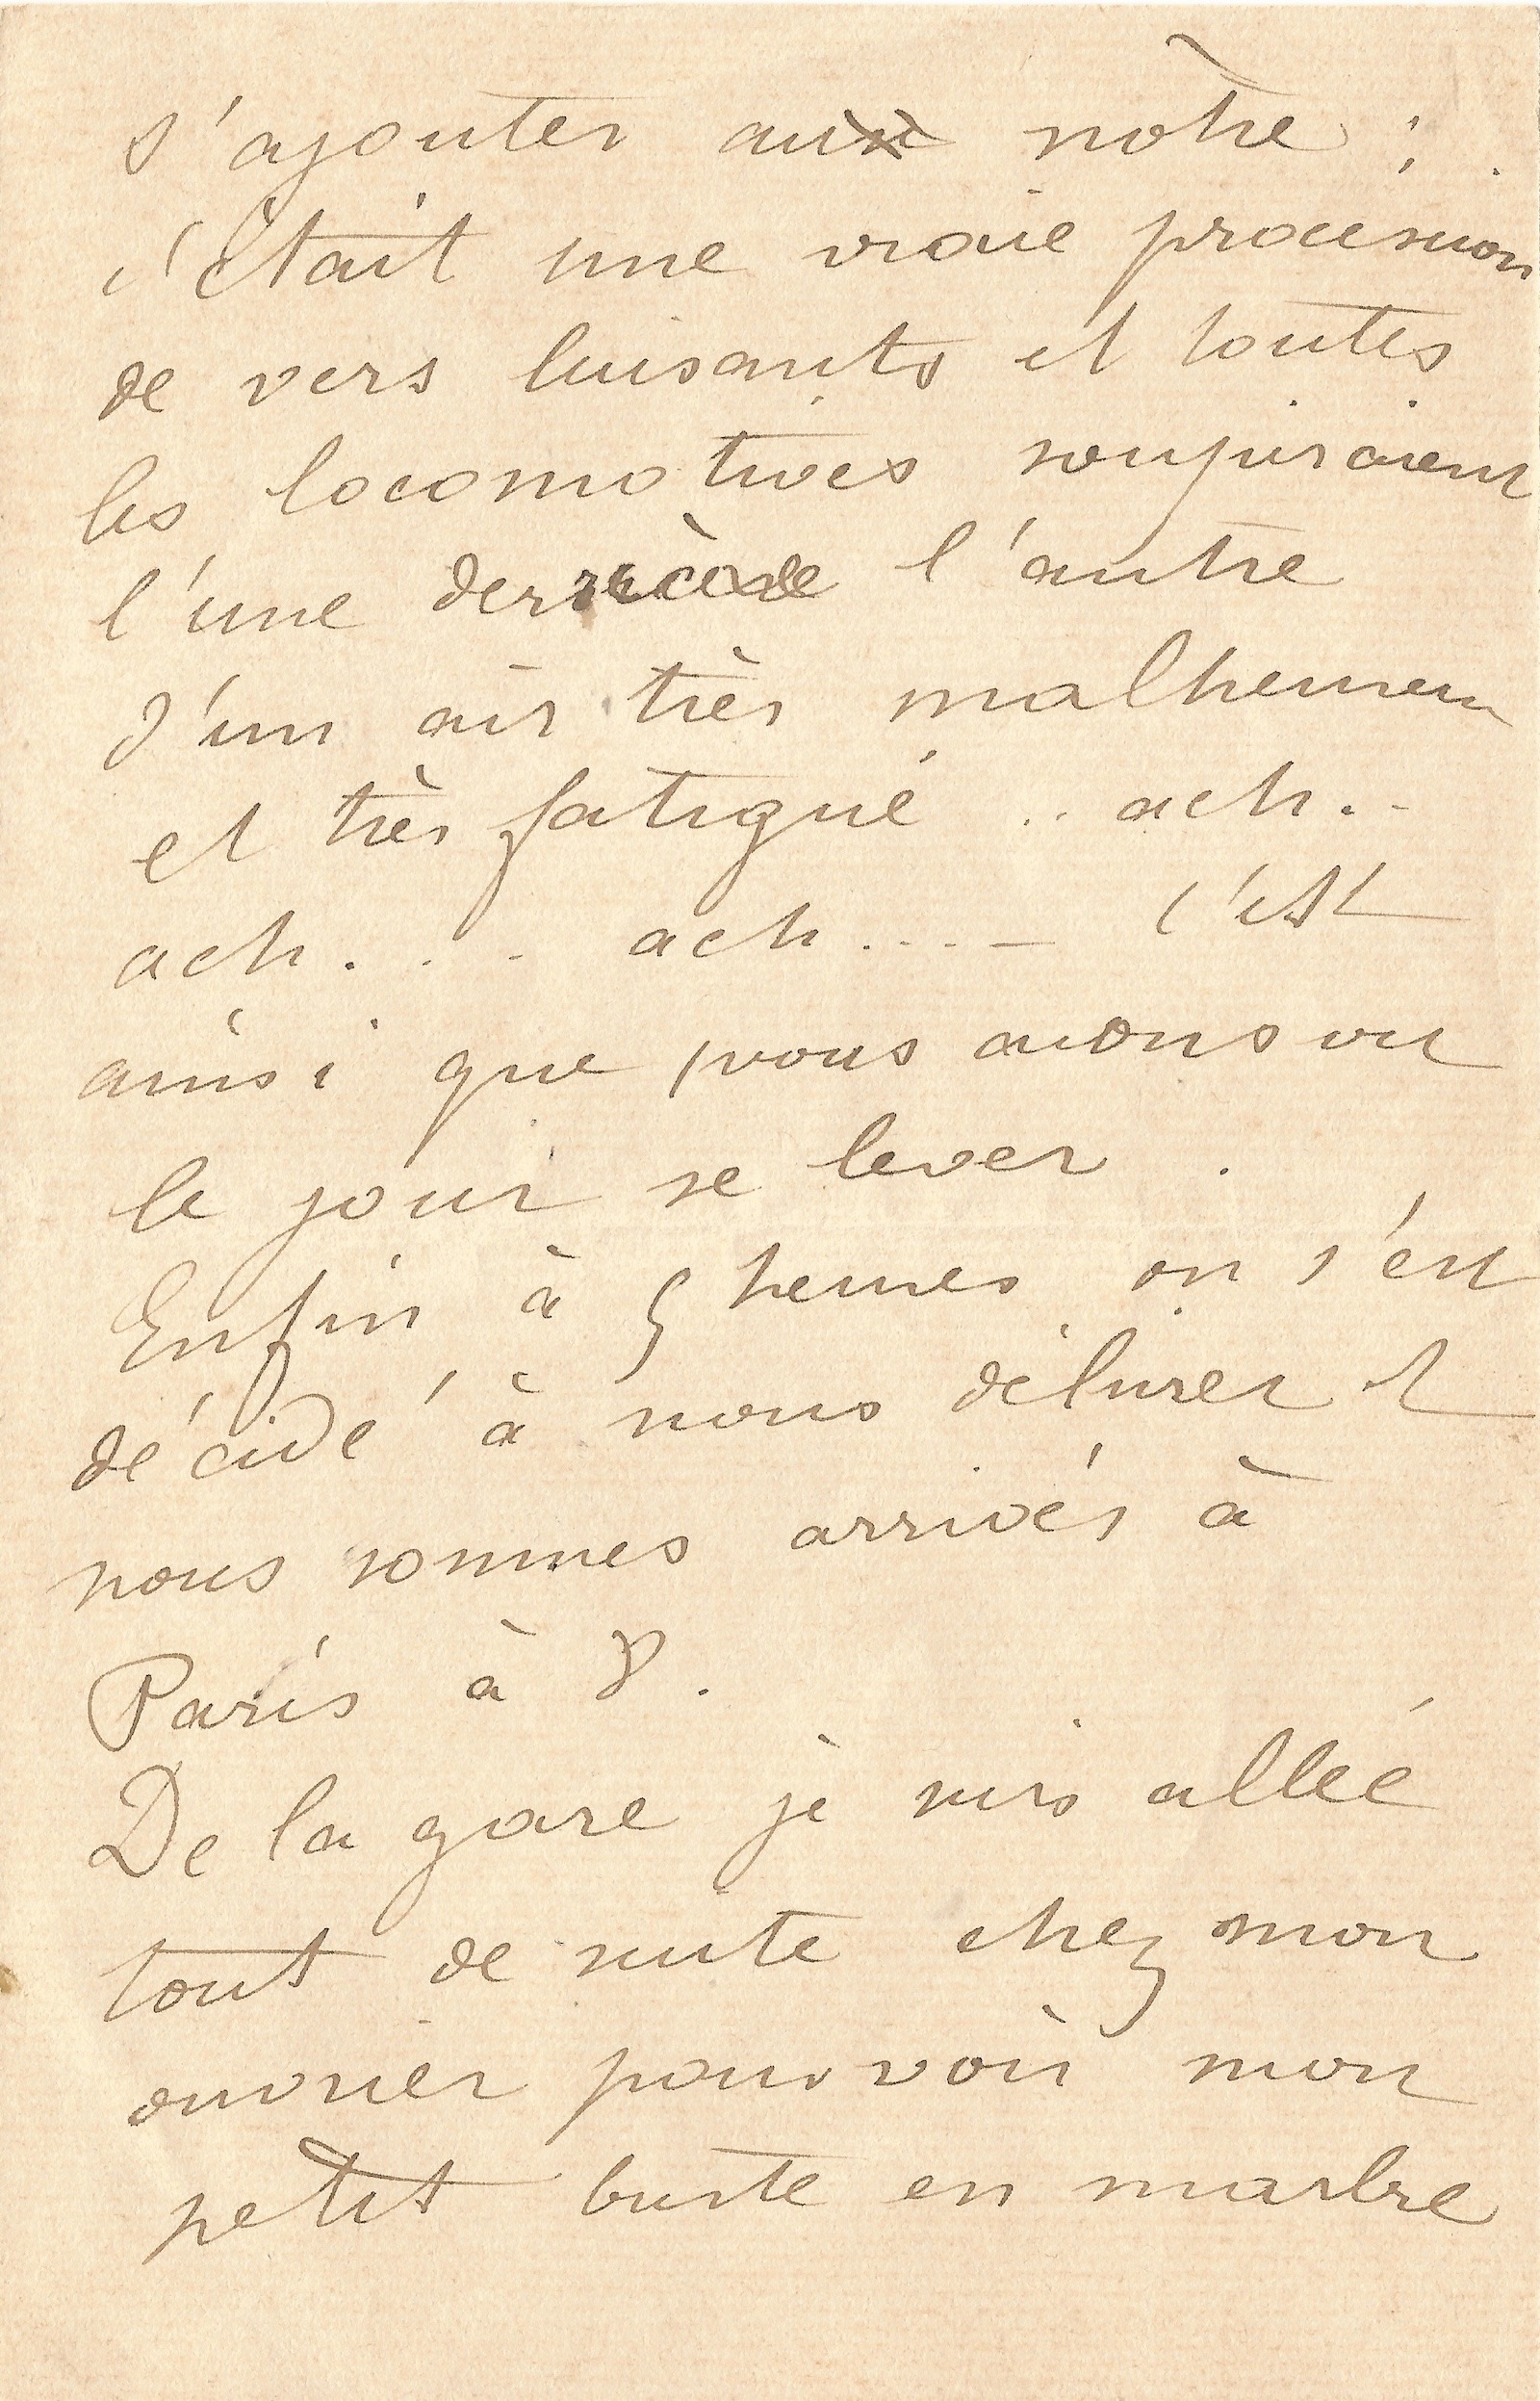 s'ajouter au notre ;
c'était une vraie procession
de vers luisants et toutes
les locomotives soupiraient
l'une derrière l'autre
d'un air très malheureux
et très fatigué .. ach ..
ach . . . ach .... c'est
ainsi que nous avons vu
le jour se lever .
Enfin à 5 heures on s'est
décidé à nous délivrer et
nous sommes arrivés à
Paris à 8 .
De la gare je suis allée
tout de suite chez mon
ouvrier pour voir mon
petit buste en marbre